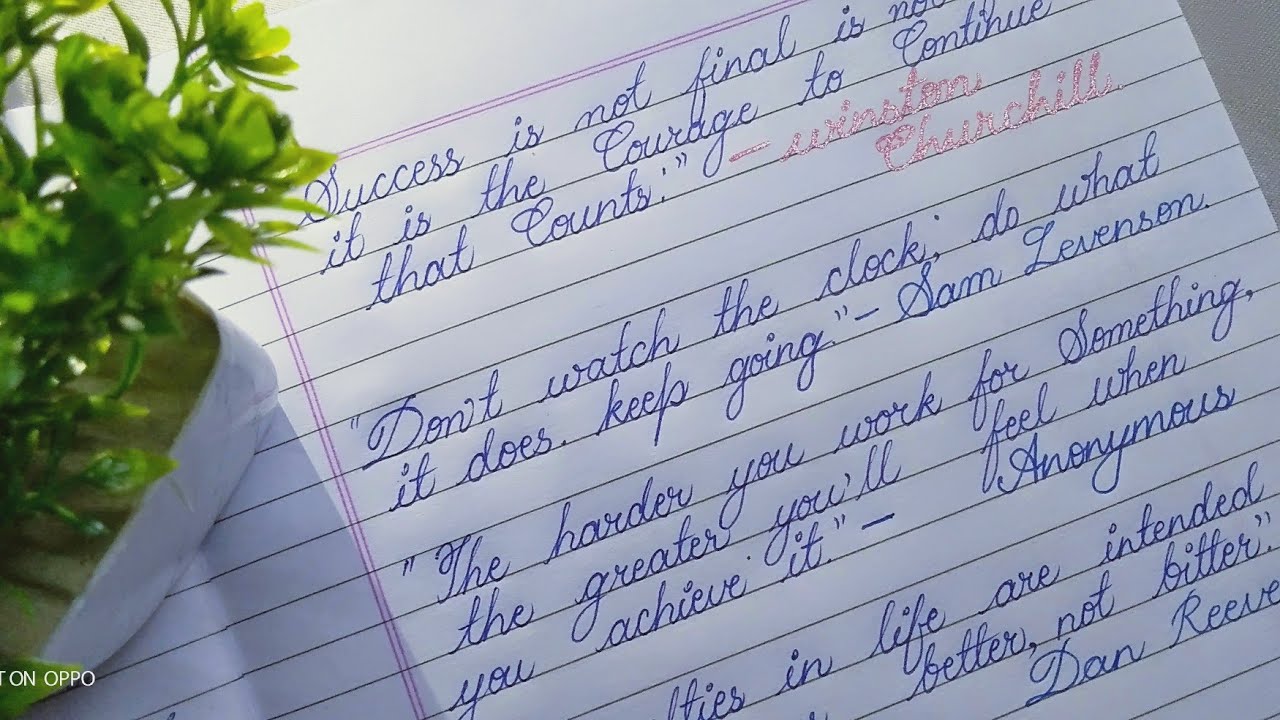 Success is not final is not
it is the Courage to Continue
that Counts." - winston
Churchill.
"Don't watch the clock; do what
it does. keep going." - Sam Levenson.
"The harder you work for Something,
the greater you'll feel when
you achieve it." - Anonymous
lties in life are intended
better, not bitter."
Dan Reeve
T ON OPPO